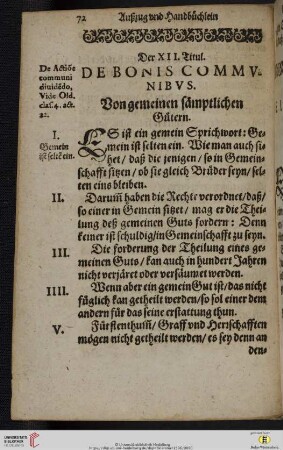 72 Außzug vnd Handbüchlein
Der XII. Titul.
DE BONIS COMMV-
NIBVS.
Von gemeinen sämptlichen
Gütern.
De Actiõe
communi
diuidẽdo,
Vide Old.
claſ. 4. act.
22.
I.
Gemein
iſt ſeltẽ ein.
ES iſt ein gemein Sprichwort: Ge-
mein iſt ſelten ein. Wie man auch ſi-
het / daß die jenigen / ſo in Gemein-
ſchafft ſitzen / ob ſie gleich Brüder ſeyn / ſel-
ten eins bleiben.
II. Darum̃ haben die Rechte verordnet / daß /
ſo einer in Gemein ſitzet / mag er die Thei-
lung deß gemeinen Guts fordern: Denn
keiner iſt ſchuldig in Gemeinſchafft zu ſeyn.
III. Die forderung der Theilung eines ge-
meinen Guts / kan auch in hundert Jahren
nicht verjäret oder verſäumet werden.
IIII. Wenn aber ein gemein Gut iſt / das nicht
füglich kan getheilt werden / ſo ſol einer dem
andern für das ſeine erſtattung thun.
V. Fürſtenthum̃ / Graff vnd Herſchafften
mögen nicht getheilt werden / es ſey denn an
den-